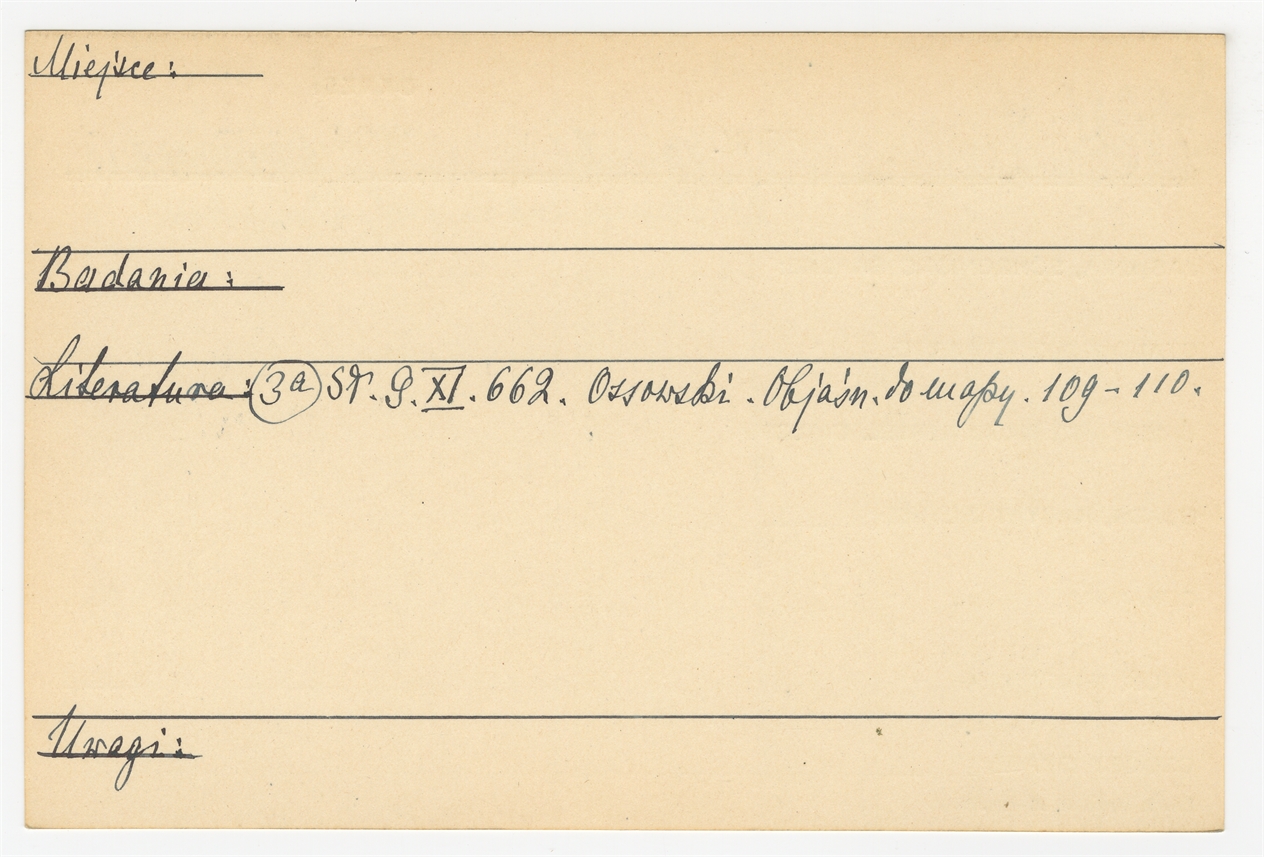 Miejsce:
Badania:
Literatura: (3a) Sł. G. XI. 662. Ossowski. Objaśn. do mapy. 109-110.
Uwagi: